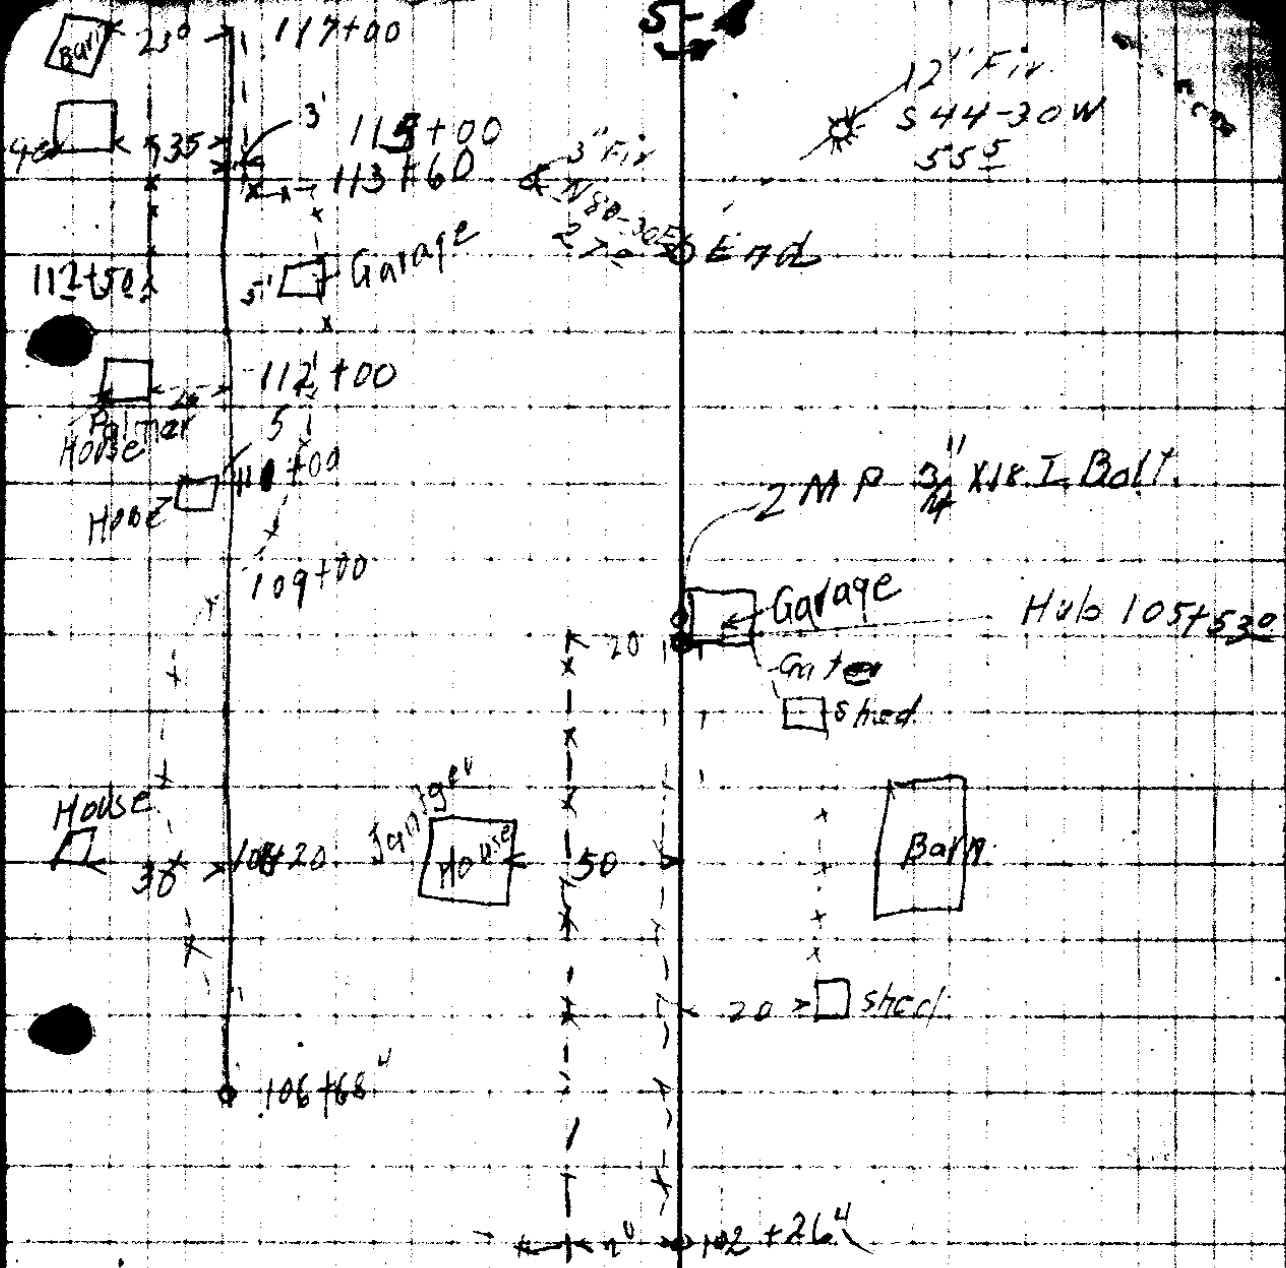 Barn
23⁰
117+00
S-1
12" Fir
S 44-30 W
55 5
3'
115+00
35
113+60
3" Fir
N80-30E
27⁰
End
Garage
5'
112+50
112+00
Palmer
House
5
111+00
House
109+00
2 M P 3/4" X 18 I. Bolt
Garage
Hub 105+53⁰
20
Gate
Shed
House
30
House
50
Barn
20
shed
106+68⁴
102+26⁴